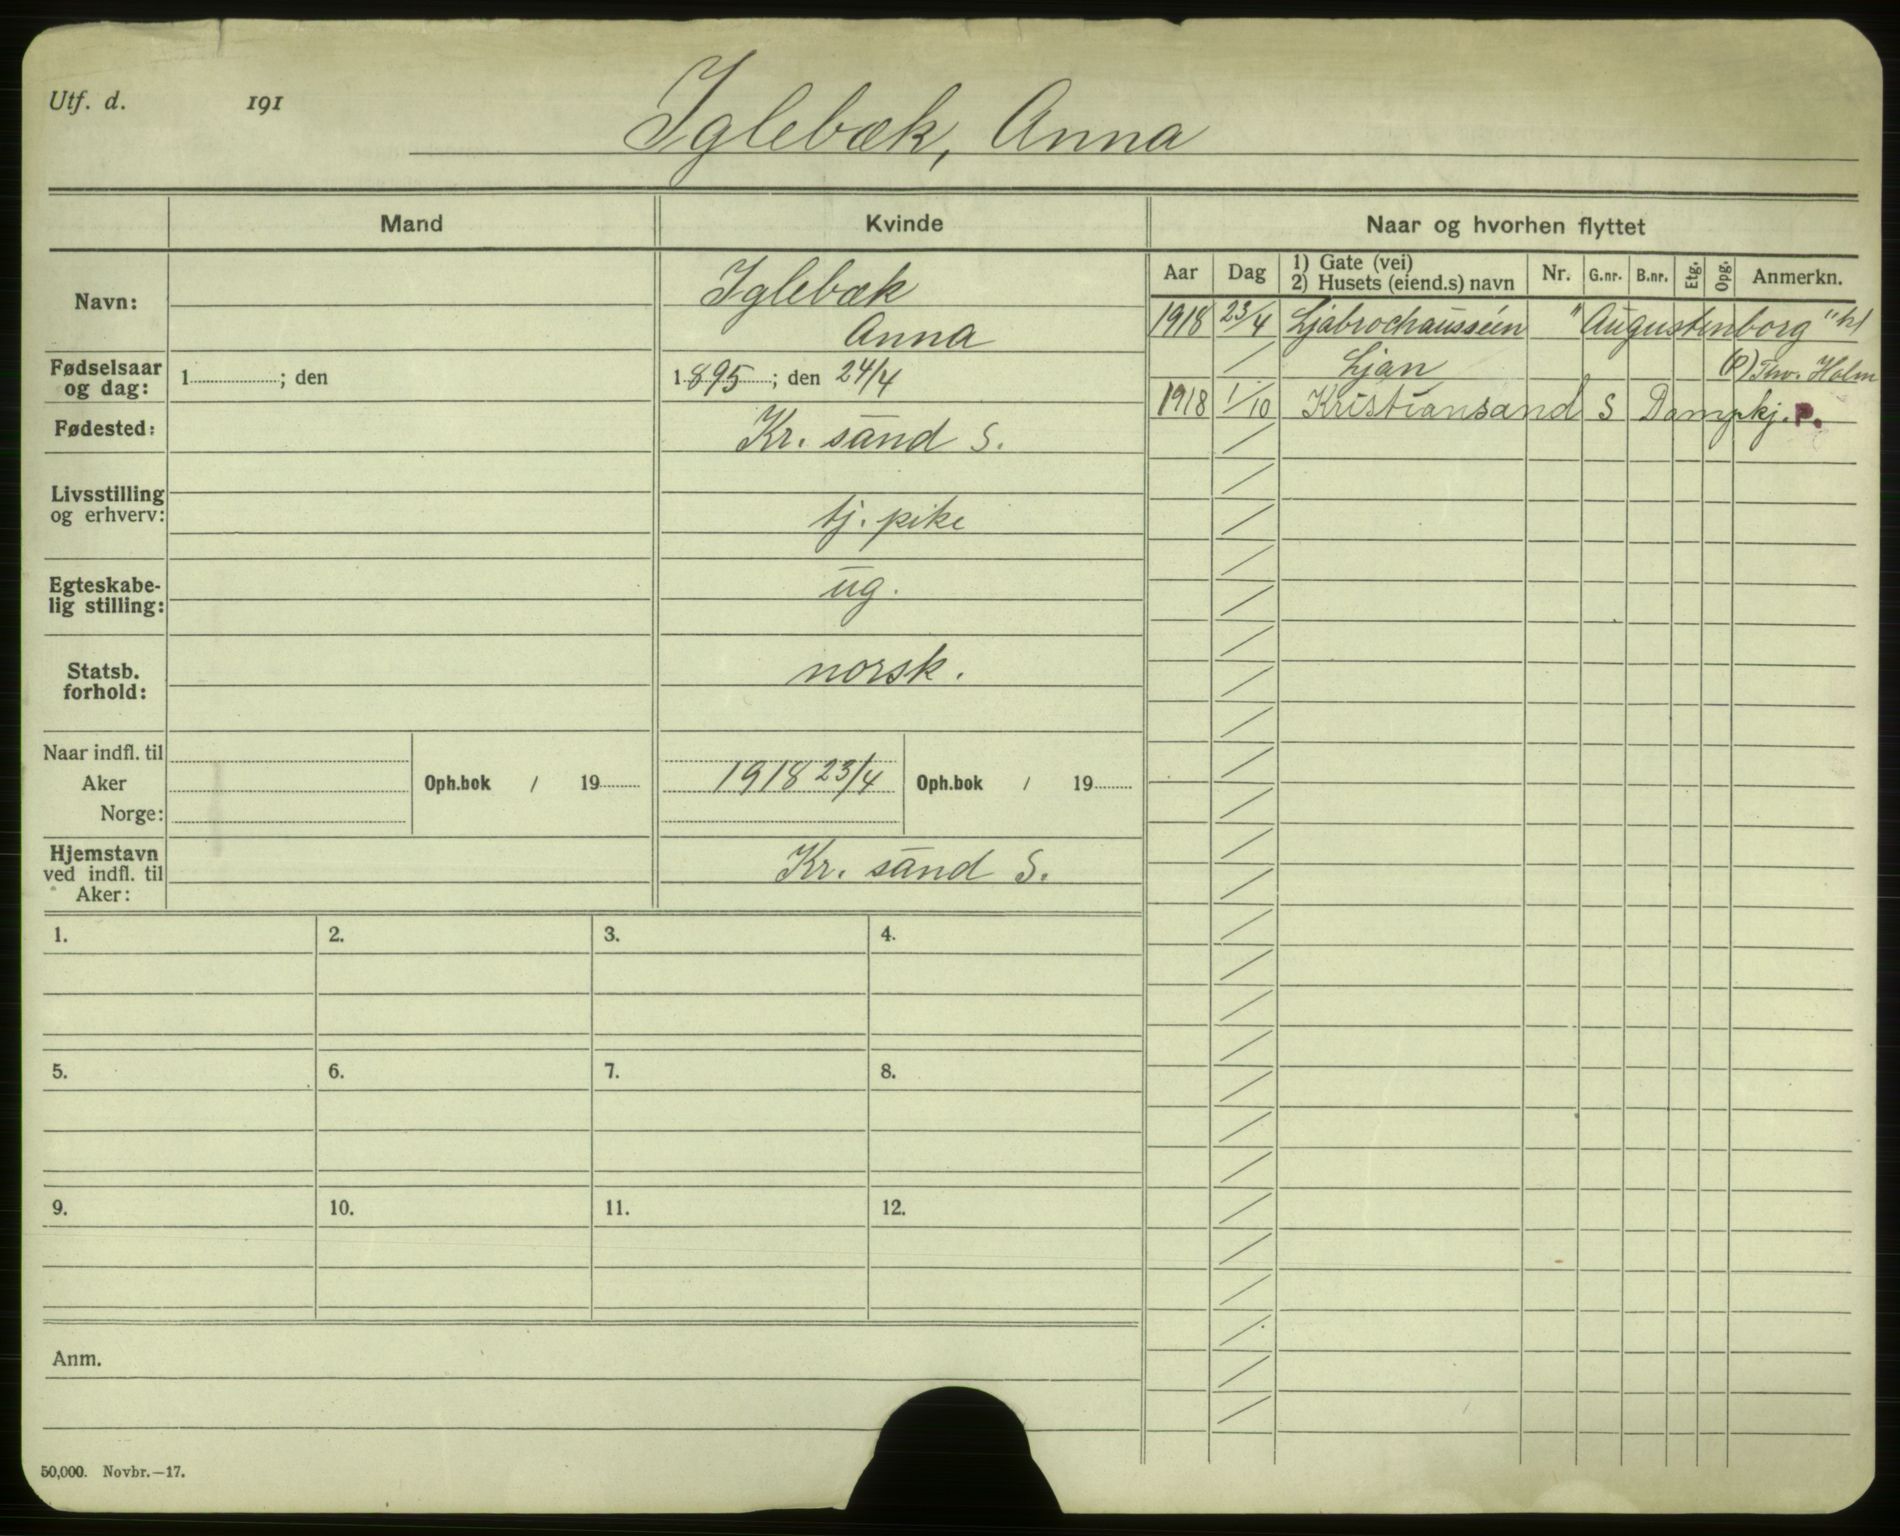 Utf. d. 191
Iglebæk, Anna
Mand
Kvinde
Naar og hvorhen flyttet
Aar Dag 1) Gate (vei) 2) Husets (eiend.s) navn Nr. G.nr. B.nr. Etg. Opg. Anmerkn.
Navn: Iglebæk
Anna
Fødselsaar og dag: 1 ; den 1895 ; den 24/4
Fødested: Kr. sand S.
Livsstilling og erhverv: tj. pike
Egteskabe-
lig stilling: ug.
Statsb. forhold: norsk.
Naar indfl. til
Aker Oph.bok / 19 1918 23/4 Oph.bok / 19
Norge:
Hjemstavn
ved indfl. til Kr. sand S.
Aker:
1918 23/4 Ljabrochausséen "Augustenborg"
Ljan (P) Thv. Holm
1918 1/10 Kristiansand S Dampkj. P.
1. 2. 3. 4.
5. 6. 7. 8.
9. 10. 11. 12.
Anm.
50,000. Novbr.—17.